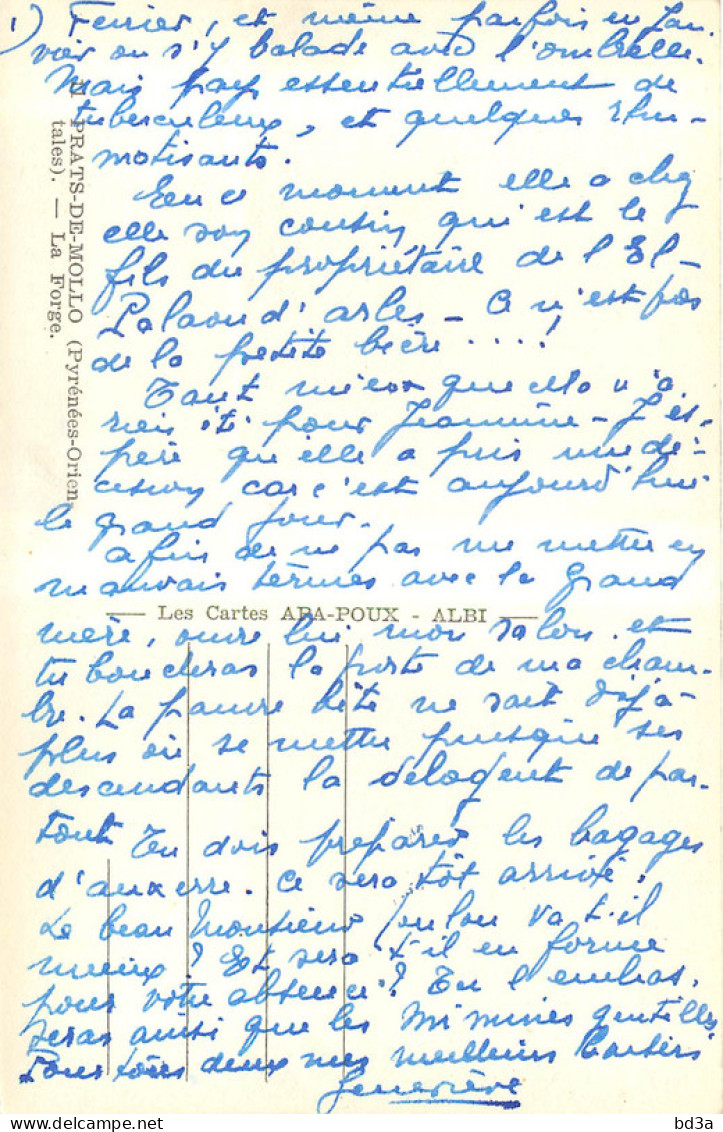 1) Fevrier, et même parfois en Jan-
vier on s'y balade avec l'ombrelle.
Mais pays essentiellement de
tuberculeux, et quelques rhu-
motisants.
En ce moment elle a chez
elle son cousin qui est le
fils du propriétaire de l'El-
Palaon d'arles - Ce n'est pas
de la petite bière ....!
Tant mieux que cela n'a
rien été pour Jeannine - J'es-
père qu'elle a pris une dé-
cision car c'est aujourd'hui
le grand jour.
afin de ne pas me mettre en
mauvais termes avec la Grand
mère, ouvre lui mon salon et
tu boucleras la porte de ma cham-
bre. La pauvre bête ne sait déjà
plus où se mettre puisque ses
descendants la délogent de par-
tout. Tu dois préparer les bagages
d'auxerre. Ce sera tôt arrivé.
Le beau Monsieur Loulou va t-il
mieux? Et sera t'il en forme
pour votre absence? Tu l'embras.
seras ainsi que les Mimines gentilles
Pour tous deux mes meilleurs baisers
Geneviève
PRATS-DE-MOLLO (Pyrénées-Orien-
tales). — La Forge.
— Les Cartes APA-POUX - ALBI —